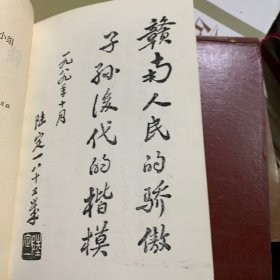 赣南人民的骄傲
子孙后代的楷模
一九八九年十月
陆定一八十三岁
小组